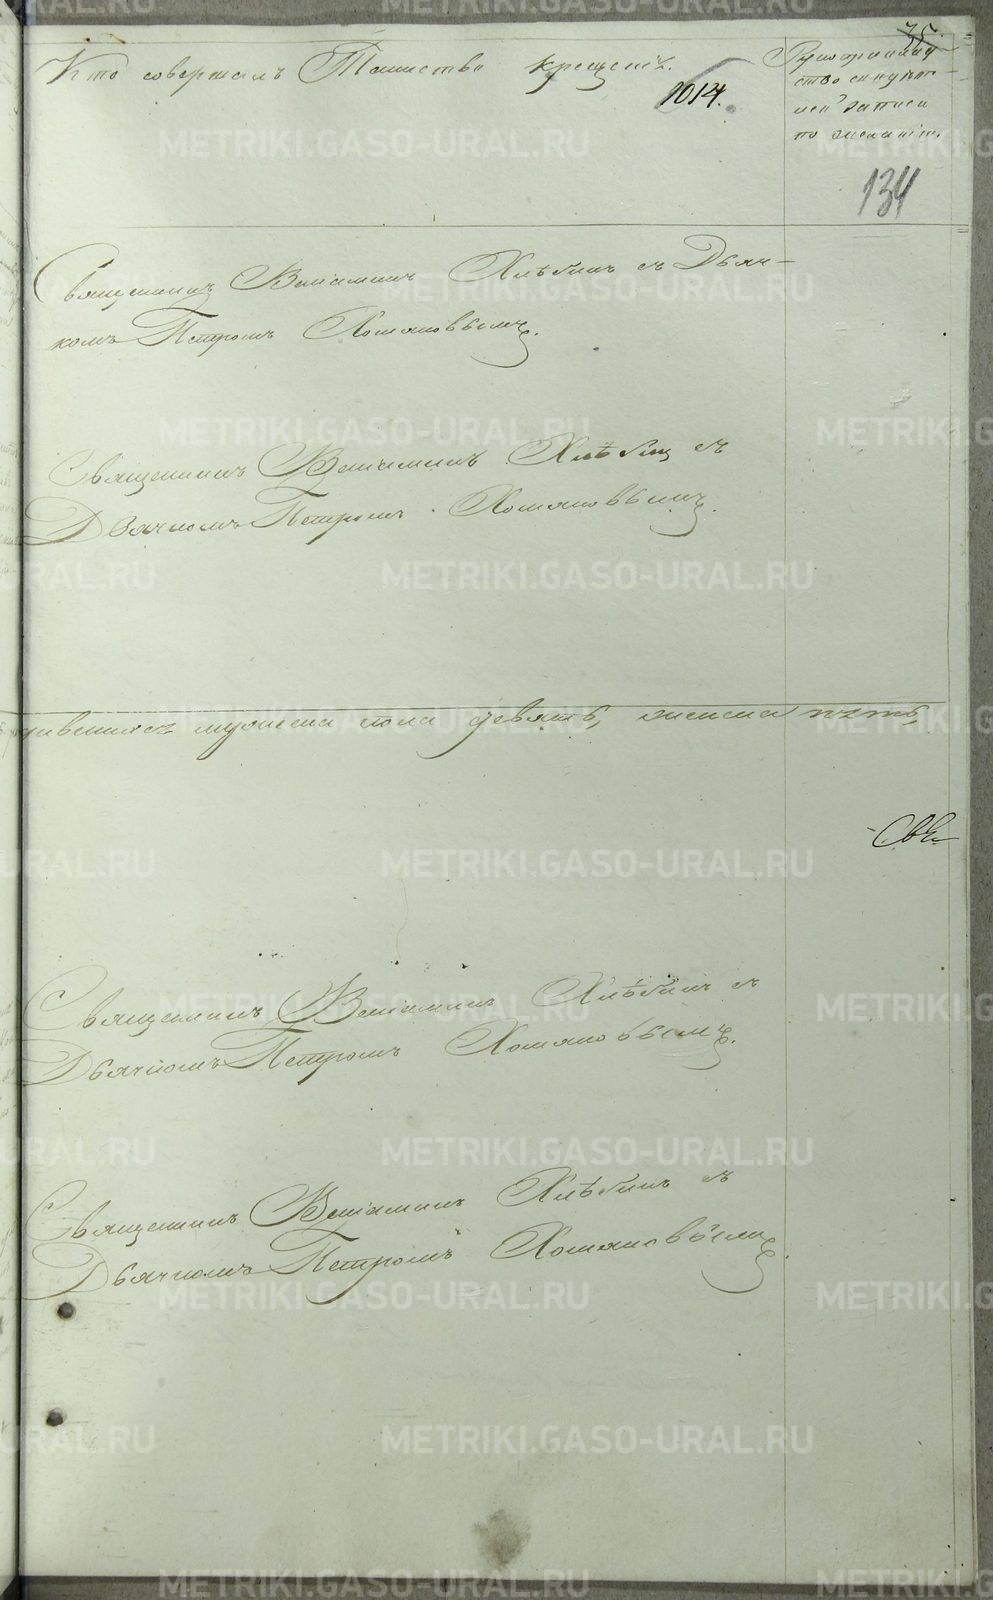 35.
Кто совершалъ Таинство крещенія.
1014.
Рукоприклад
ство свидѣт
лей записи
по желанію.
134
Священникъ Веніаминъ Хлѣбинъ съ Дьяч-
комъ Петромъ Хомяковымъ.
Священникъ Веніаминъ Хлѣбинъ съ
Дьячкомъ Петромъ Хомяковымъ.
мужеска пола девять, женска пять,
Священникъ Веніаминъ Хлѣбинъ съ
Дьячкомъ Петромъ Хомяковымъ.
Священникъ Веніаминъ Хлѣбинъ съ
Дьячкомъ Петромъ Хомяковымъ.
METRIKI.GASO-URAL.RU